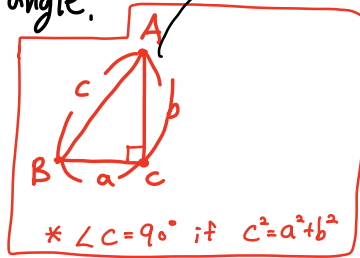 angle.
A
c
b
B
a
C
* ∠C=90° if c²=a²+b²